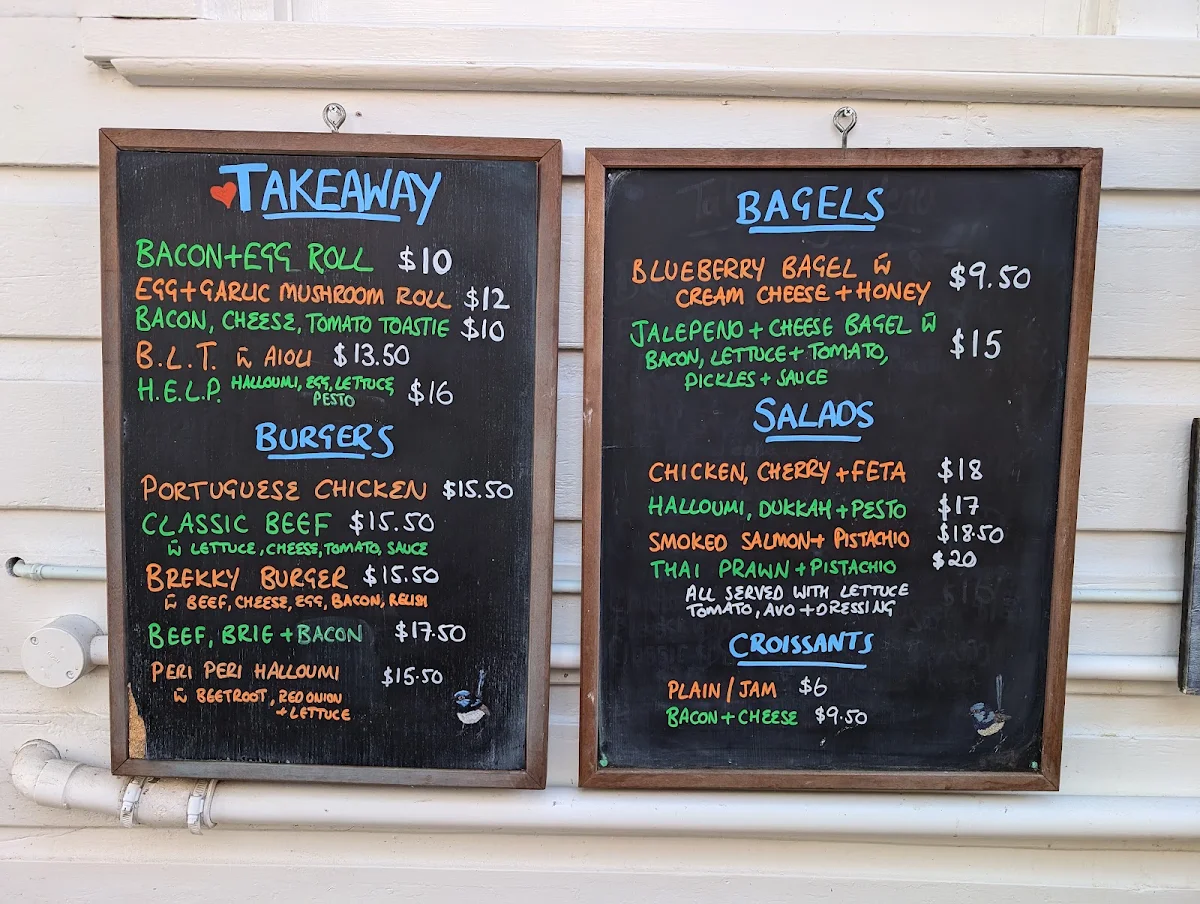 TAKEAWAY
BACON+EGG ROLL $10
EGG+GARLIC MUSHROOM ROLL $12
BACON, CHEESE, TOMATO TOASTIE $10
B.L.T. w̄ AIOLI $13.50
H.E.L.P. HALLOUMI, EGG, LETTUCE, $16
PESTO
BURGERS
PORTUGUESE CHICKEN $15.50
CLASSIC BEEF $15.50
w̄ LETTUCE, CHEESE, TOMATO, SAUCE
BREKKY BURGER $15.50
w̄ BEEF, CHEESE, EGG, BACON, RELISH
BEEF, BRIE + BACON $17.50
PERI PERI HALLOUMI $15.50
w̄ BEETROOT, RED ONION
+ LETTUCE
BAGELS
BLUEBERRY BAGEL w̄ $9.50
CREAM CHEESE + HONEY
JALEPENO + CHEESE BAGEL w̄ $15
BACON, LETTUCE + TOMATO,
PICKLES + SAUCE
SALADS
CHICKEN, CHERRY + FETA $18
HALLOUMI, DUKKAH + PESTO $17
SMOKED SALMON + PISTACHIO $18.50
THAI PRAWN + PISTACHIO $20
ALL SERVED WITH LETTUCE
TOMATO, AVO + DRESSING
CROISSANTS
PLAIN / JAM $6
BACON + CHEESE $9.50